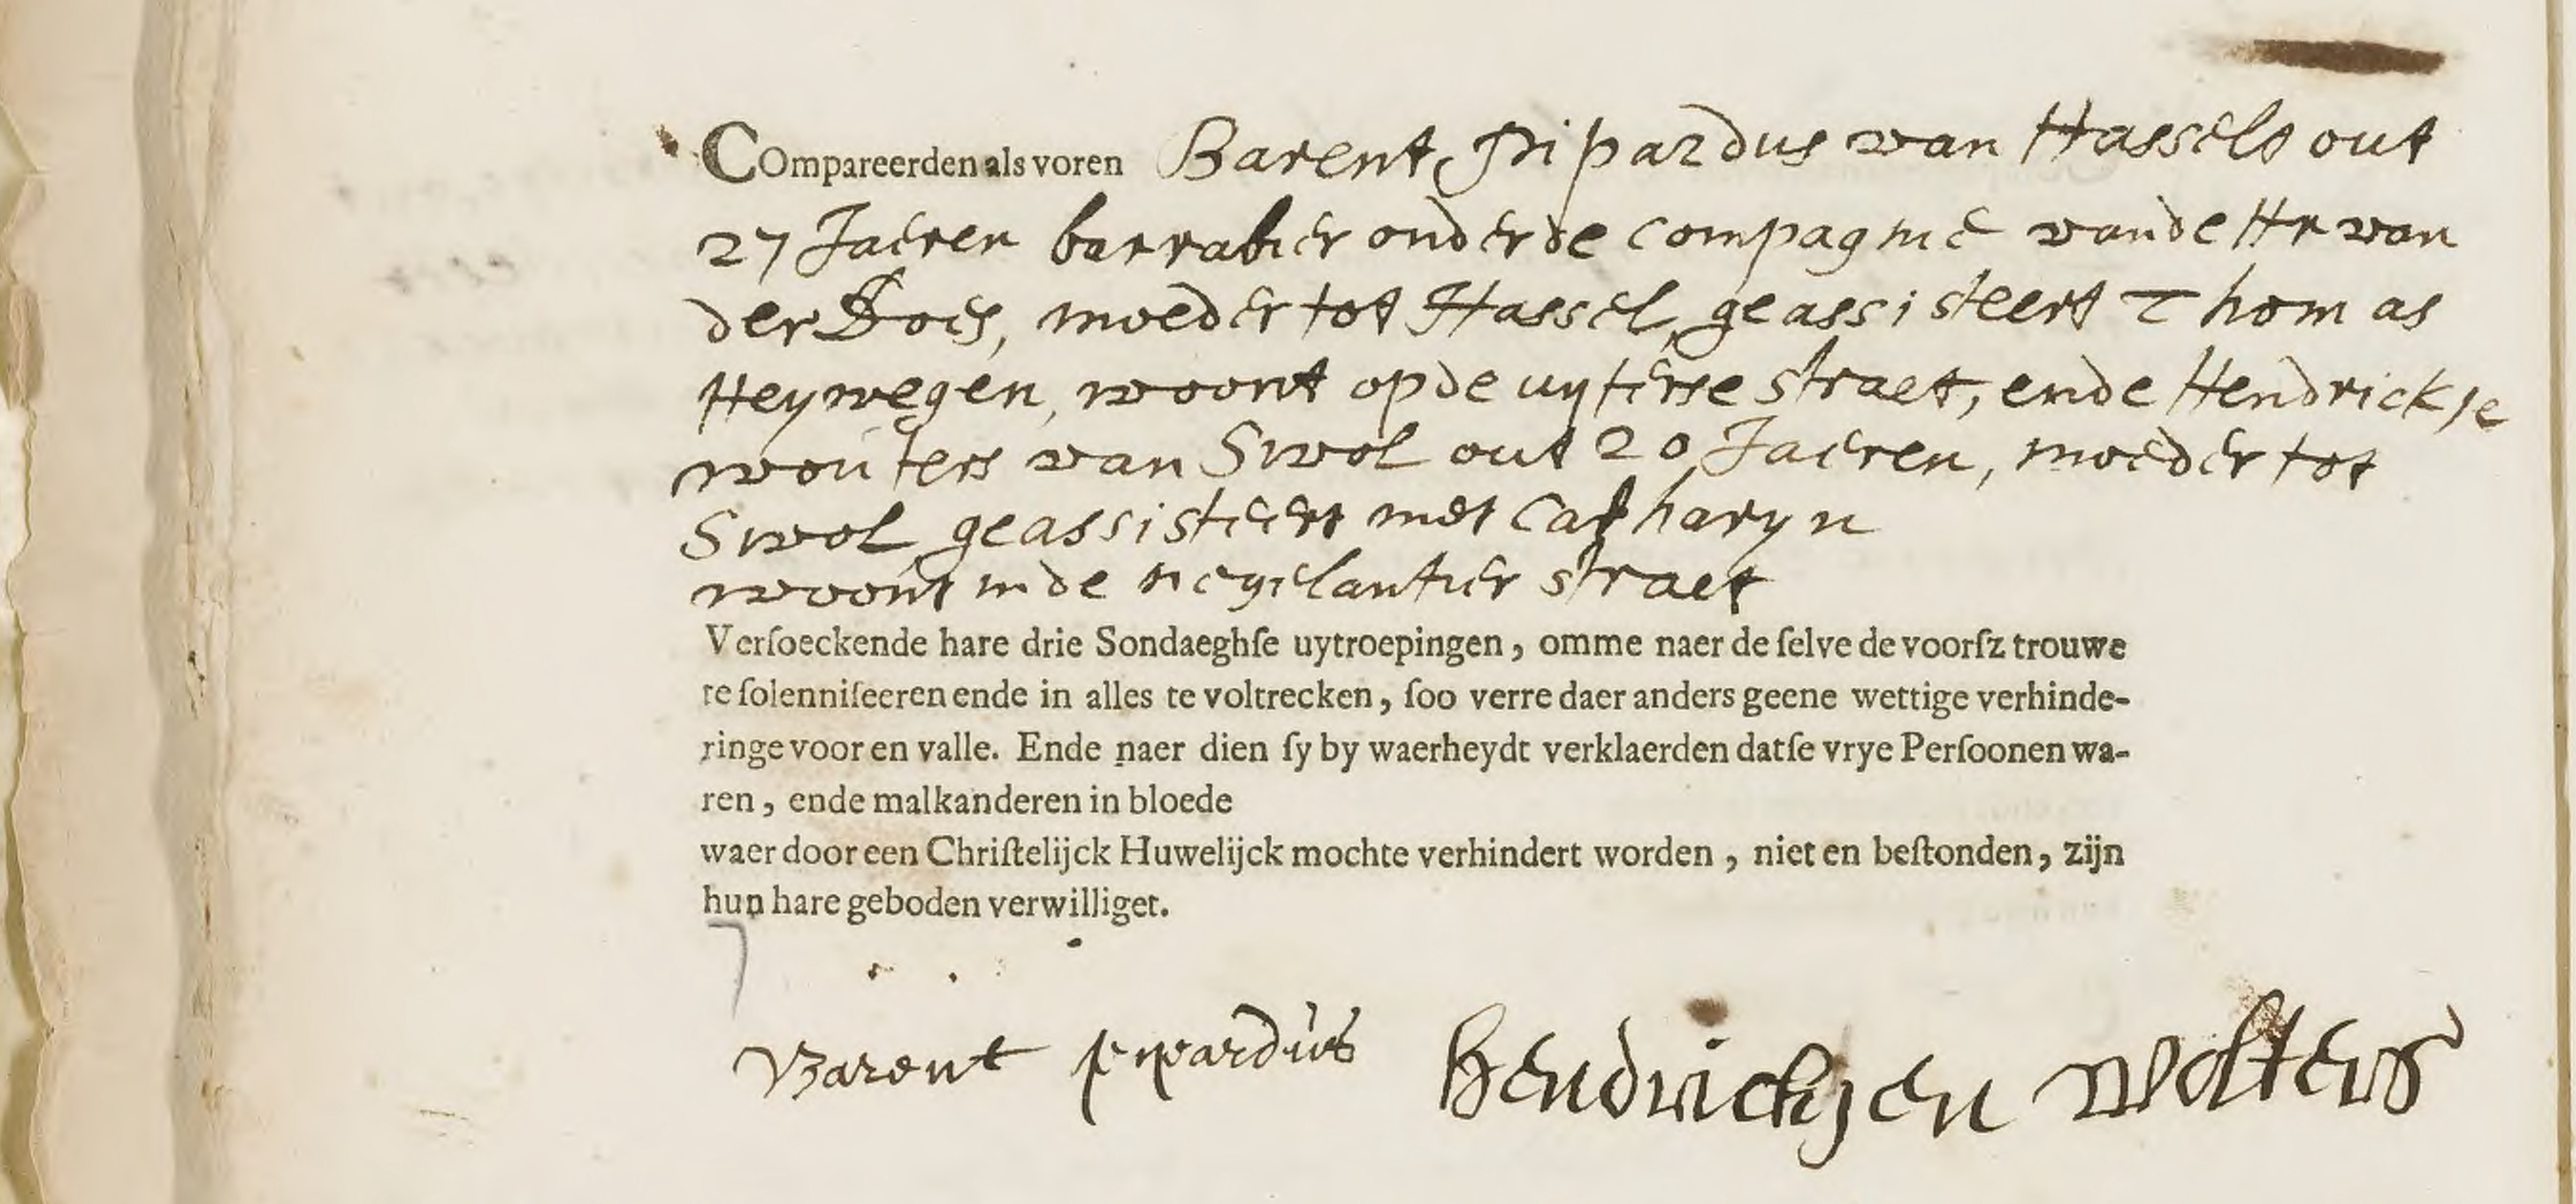 COmpareerden als voren Barent Pipardus van Hasselt out
27 Jaeren barrabier onder de compagnie vande Hr van
der Does, moeder tot Hassel, geassisteert Thomas
Heywegen, woont op de uyterse straet, ende Hendrickje
wouters van Swol out 20 Jaeren, moeder tot
Swol geassisteert met Catharyn
woont in de negelantier straet
Verſoeckende hare drie Sondaeghſe uytroepingen, omme naer de ſelve de voorſz trouwe
te ſolenniſeeren ende in alles te voltrecken, ſoo verre daer anders geene wettige verhinde-
ringe voor en valle. Ende naer dien ſy by waerheydt verklaerden datſe vrye Perſoonen wa-
ren, ende malkanderen in bloede
waer door een Chriſtelijck Huwelijck mochte verhindert worden, niet en beſtonden, zijn
hun hare geboden verwilliget.
Barent pipardus Hendrickjen Wolters